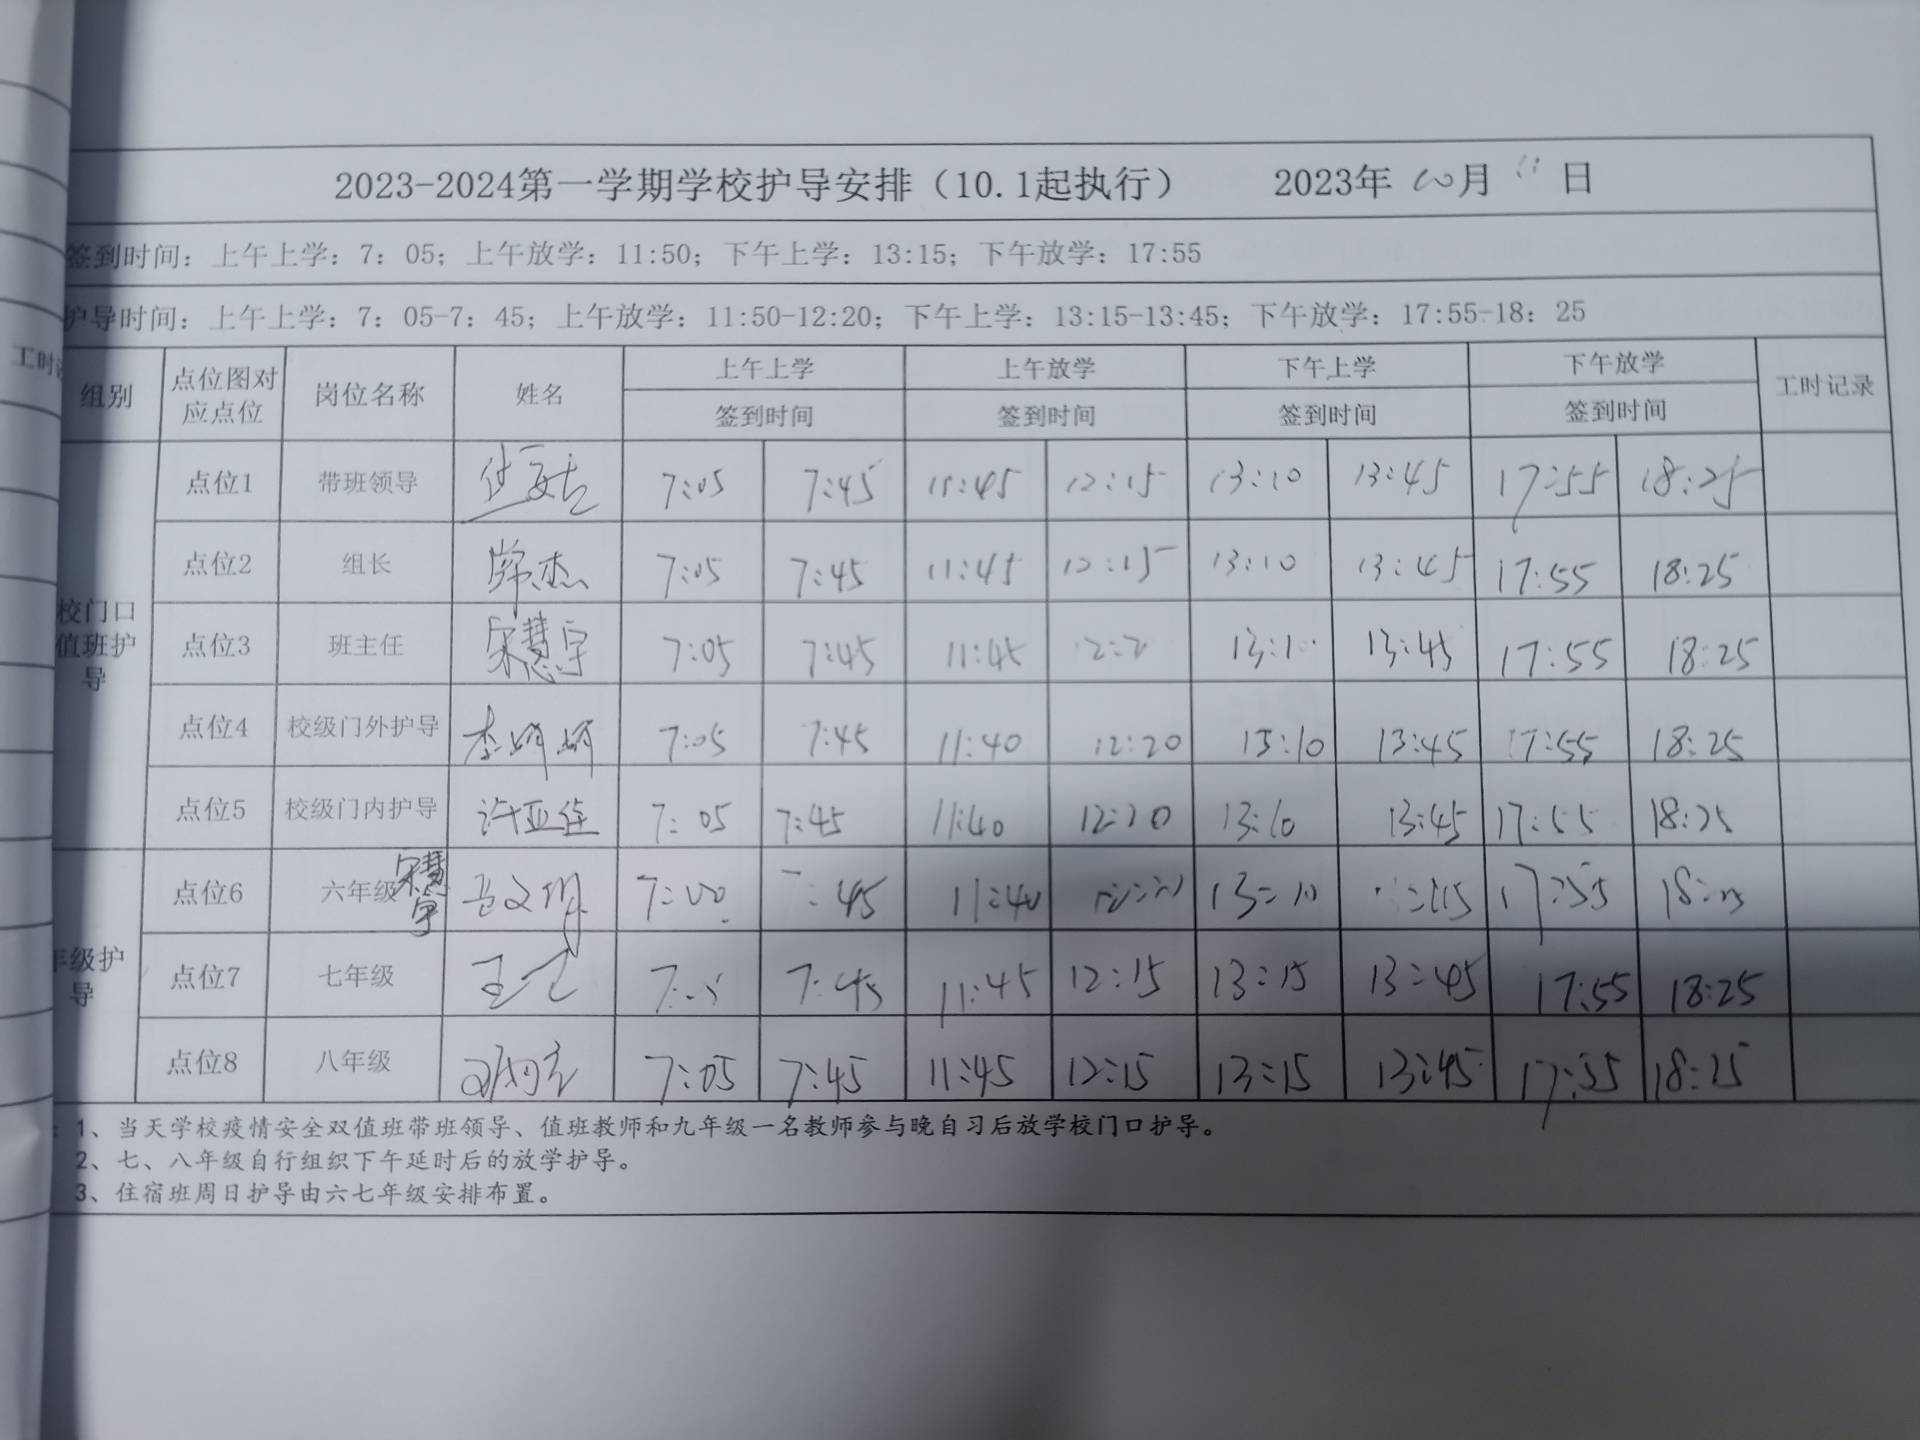 2023-2024第一学期学校护导安排（10.1起执行） 2023年 10月 11日
签到时间：上午上学：7：05；上午放学：11:50；下午上学：13:15；下午放学：17:55
护导时间：上午上学：7：05-7：45；上午放学：11:50-12:20；下午上学：13:15-13:45；下午放学：17:55-18：25
工时
组别 点位图对应点位 岗位名称 姓名 上午上学 上午放学 下午上学 下午放学 工时记录
签到时间 签到时间 签到时间 签到时间
校门口值班护导
点位1 带班领导 7:05 7:45 11:45 12:15 13:10 13:45 17:55 18:25
点位2 组长 7:05 7:45 11:45 12:15 13:10 13:45 17:55 18:25
点位3 班主任 宋慧宇 7:05 7:45 11:45 13:10 13:45 17:55 18:25
点位4 校级门外护导 李娇娇 7:05 7:45 11:40 12:20 13:10 13:45 17:55 18:25
点位5 校级门内护导 7:05 7:45 11:40 12:20 13:10 13:45 17:55 18:25
年级护导
点位6 六年级 宋慧宇 7:00 7:45 11:40 13:10 17:55
点位7 七年级 7:05 7:45 11:45 12:15 13:15 13:45 17:55 18:25
点位8 八年级 7:05 7:45 11:45 12:15 13:15 13:45 17:55 18:25
：1、当天学校疫情安全双值班带班领导、值班教师和九年级一名教师参与晚自习后放学校门口护导。
2、七、八年级自行组织下午延时后的放学护导。
3、住宿班周日护导由六七年级安排布置。